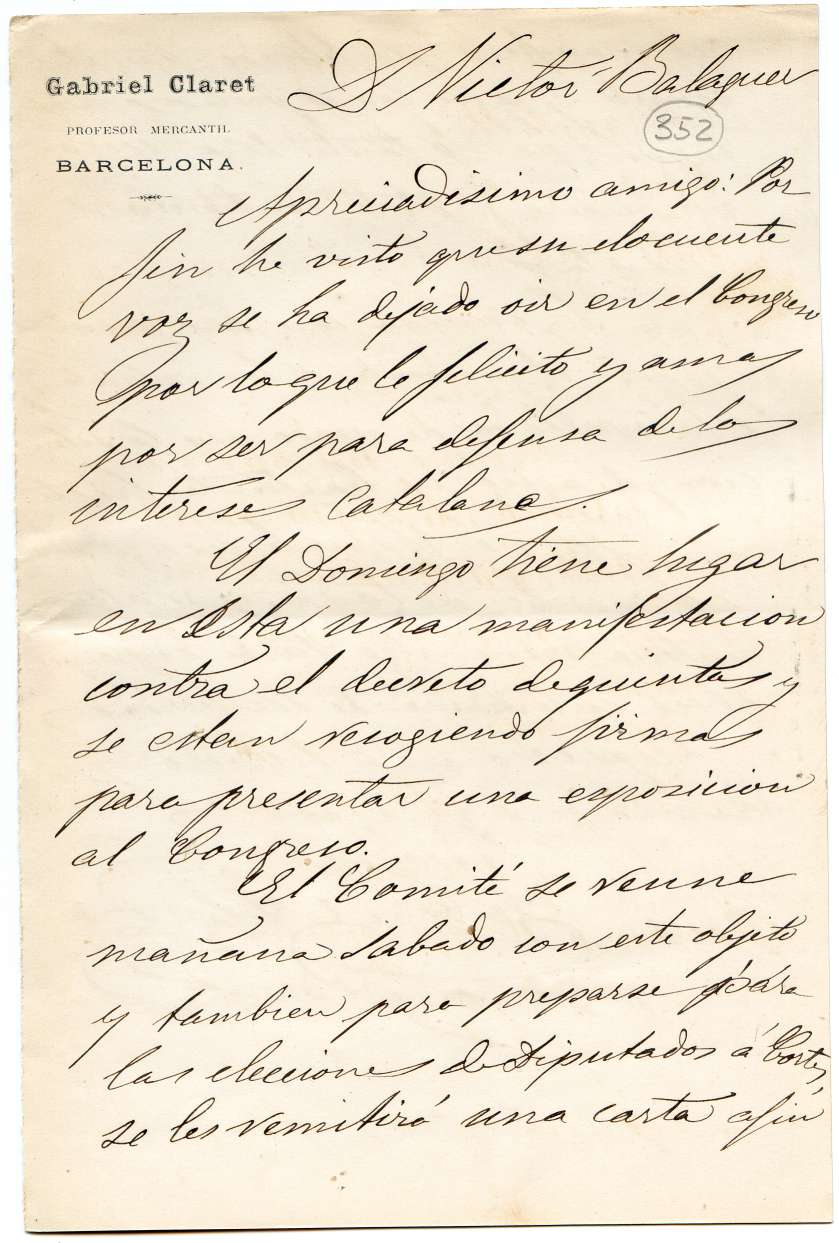 Gabriel Claret
PROFESOR MERCANTIL
BARCELONA.
D Victor Balaguer
352
Apreciadisimo amigo: Por
fin he visto que su elocuente
voz se ha dejado oir en el Congreso
por lo que le felicito y amas
por ser para defensa de los
intereses catalanes.
El Domingo tiene lugar
en Esta una manifestacion
contra el decreto de quintas y
se estan recogiendo firmas
para presentar una esposicion
al Congreso.
El Comité se reune
mañana sabado con este objeto
y tambien para preparse para
las elecciones de Diputados á Cortes,
se les remitirá una carta afin